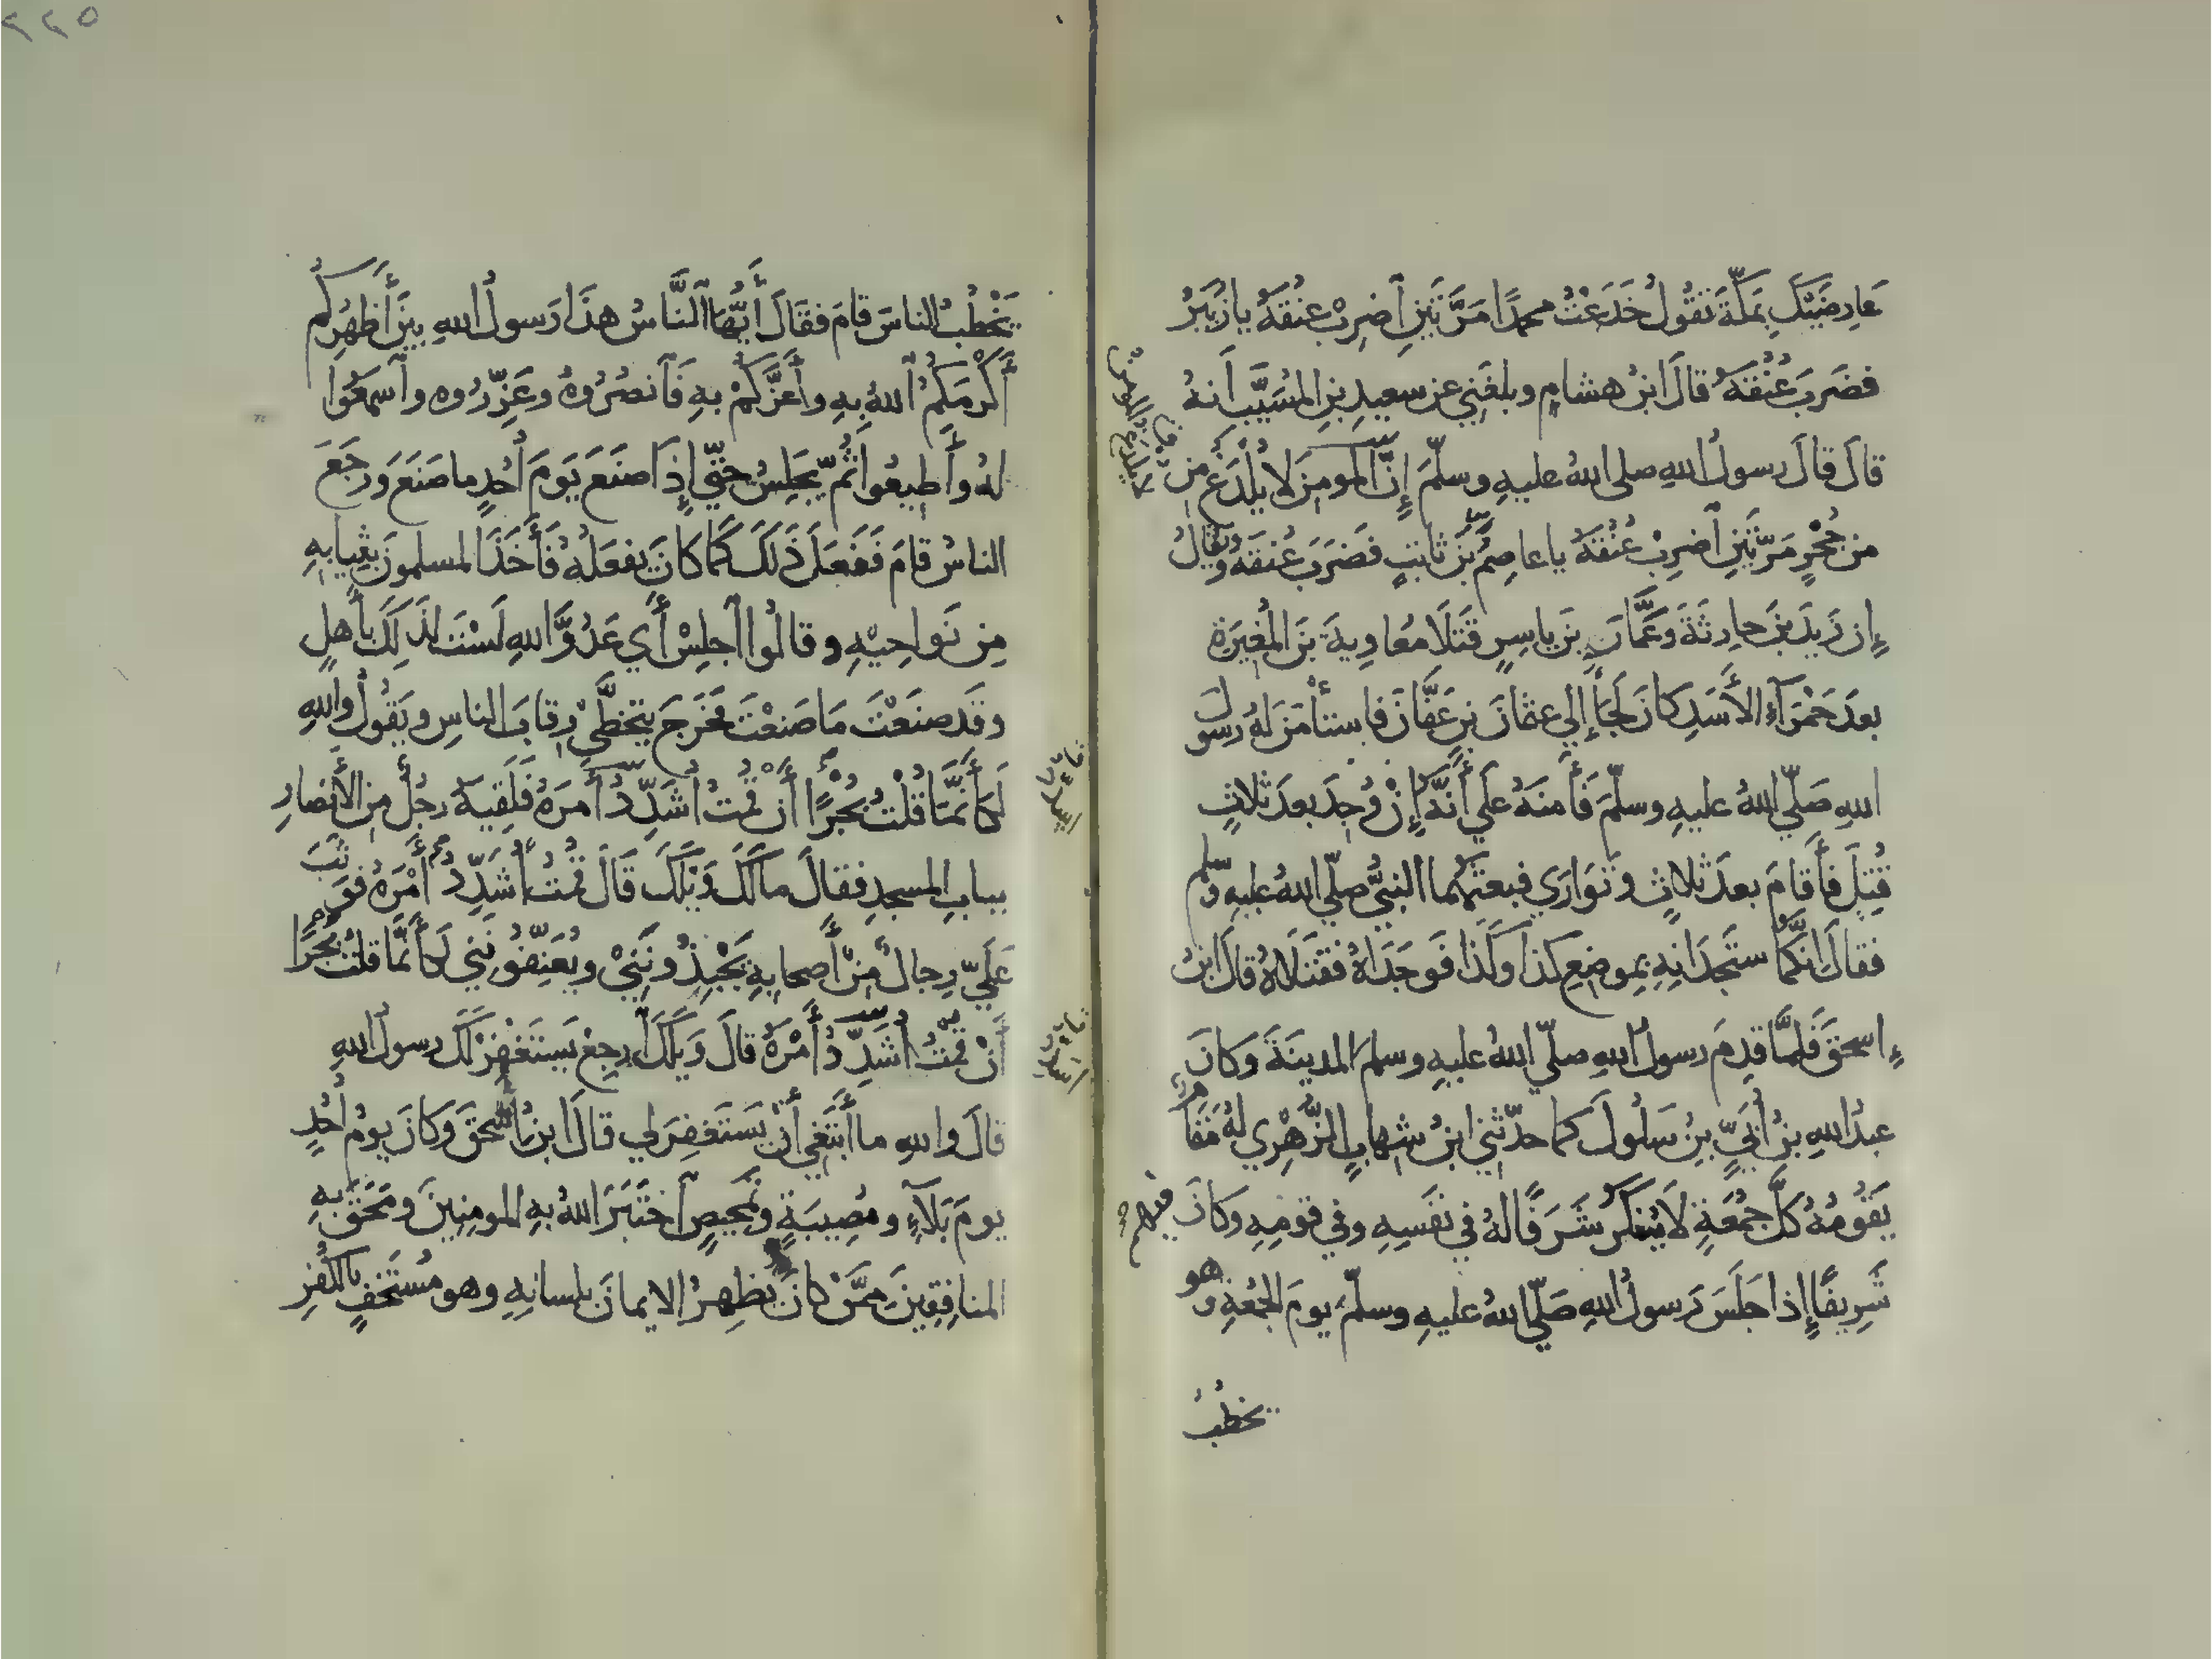 عَارِضَيْكَ بِمَكَّةَ تَقُولُ خَدَعْتُ محمدًا مَرَّتَيْنِ اَضرِبْ عنُقَهُ يا زُبَيْرُ
فضَرَبَ عُنُقَهُ قالَ ابنُ هشامٍ وبلغَنِي عن سعيدِ بنِ المُسَيَّبِ أَنهُ
قالَ قالَ رسولُ اللهِ صلى اللهُ عليهِ وسلّمَ إِنَّ المومِنَ لا يُلْدَغُ مِن
من جُحْرٍ مَرَّتَيْنِ اَضرِبْ عُنُقَهُ يا عاصِمُ بنَ ثابتٍ فضَرَبَ عُنقَهُ ويُقَالُ
إِن زَيدَ بنَ حارثَةَ وعَمَّارَ بنَ ياسِرٍ قَتَلَا مُعاوِيةَ بنَ المُغيرَةِ
بعدَ حَمْرَآءِ الأَسَدِ كانَ لَجَأَ إِلي عثمانَ بنِ عَفَّانَ فاستأمَنَ لهُ رسولَ
اللهِ صَلّي اللهُ عليهِ وسلّمَ فَأَمنَهُ عَلَي أَنَّهُ إِنْ وُجِدَ بعدَ ثلاثٍ
قُتِلَ فأَقامَ بعدَ ثلاثٍ وتَوَارَي فبعثَهُما النبيُّ صلّي اللهُ عليهِ وسلم
فقالَ انَّكُما ستَجدَانِهِ بموضِعِ كذا وكَذَا فَوجَدَاهُ فقَتَلَاهُ قالَ ابنُ
إِسحقَ فَلمَّا قدِمَ رسولُ اللهِ صلّي اللهُ عليهِ وسلم المدينَةَ وَكانَ
عبدُ اللهِ بنُ أُبَيٍّ بنُ سَلُولَ كما حدّثني ابنُ شهابٍ الزُّهْرِي لهُ مَقَامٌ
يَقُومُهُ كلَّ جمُعَةٍ لا يُنكَرُ شَرَفًا لهُ في نفَسِهِ وفي قومِهِ وكانَ فيهم
شَرِيفًا إِذا جَلَسَ رَسولُ اللهِ صَلّي اللهُ عليهِ وسلّم يومَ الجمُعةِ وهو
يخطبُ
يَخْطُبُ الناسَ قامَ فقَالَ أَيُّهَا النَّاسُ هذَا رَسولُ اللهِ بينَ أَظهُرِكُم
أَكْرَمَكمُ اَللهُ بِهِ وأَعَزَّكُمْ بهِ فَاَنصُرُوهُ وعَزِّرُوه واَسمَعُوا
لهُ وأَطيعُوا ثُمّ يَجلِسُ حتّي إِذَا صنَعَ يَومَ أُحُدٍ ما صَنَعَ وَرجَعَ
الناسُ قامَ فَفَعَلَ ذَلكَ كَمَا كانَ يفعَلُهُ فَأَخَذَ المسلمونَ بثِيابِهِ
مِن نَواحِيْهِ وقالُوا اَجلِسْ أَي عَدُوَّ اللهِ لَسْتَ لذَلِكَ بأَهلٍ
وقَد صنَعْتَ مَا صَنعْتَ فخَرَجَ يتخَطَّي رِقابَ الناسِ ويَقُولُ واللهِ
لَكأَنَّمَا قُلْتُ بُجْرًا أَن قُمتُ أُشَدِّدُ أَمرَهُ فَلَقِيَهُ رجُلٌ مِن الأَنصارِ
ببابِ المسجدِ فقالَ ما لَكَ وَيْلَكَ قَالَ قُمتُ أُشَدِّدُ أَمْرَهُ فوَثَبَ
عَلَيّ رِجالٌ مِنْ أَصحابِهِ يَجْبِذُونَنِيْ ويُعَنِّفُونَنِي لَكأَنَّمَا قلتُ بُجْرًا
أَنْ قُمتُ أُشَدِّدُ أَمْرَهُ قالَ وَيلَكَ اَرجِعْ يَستَغْفِرْ لَكَ رسولُ اللهِ
قالَ واللهِ ما أَبْتَغِي أَنْ يَستَغفِرَ لي قالَ ابنُ إسحقَ وكانَ يومُ أُحُدٍ
يومَ بَلَآءٍ ومُصِيبَةٍ وتمحِيصٍ اَختَبَرَ اللهُ بهِ المومِنِينَ ومَحَقَ بهِ
المنافِقِينَ ممَّنْ كانَ يُظهِرُ الايمانَ بلسانِهِ وهو مُستَخفٍ بالكُفرِ